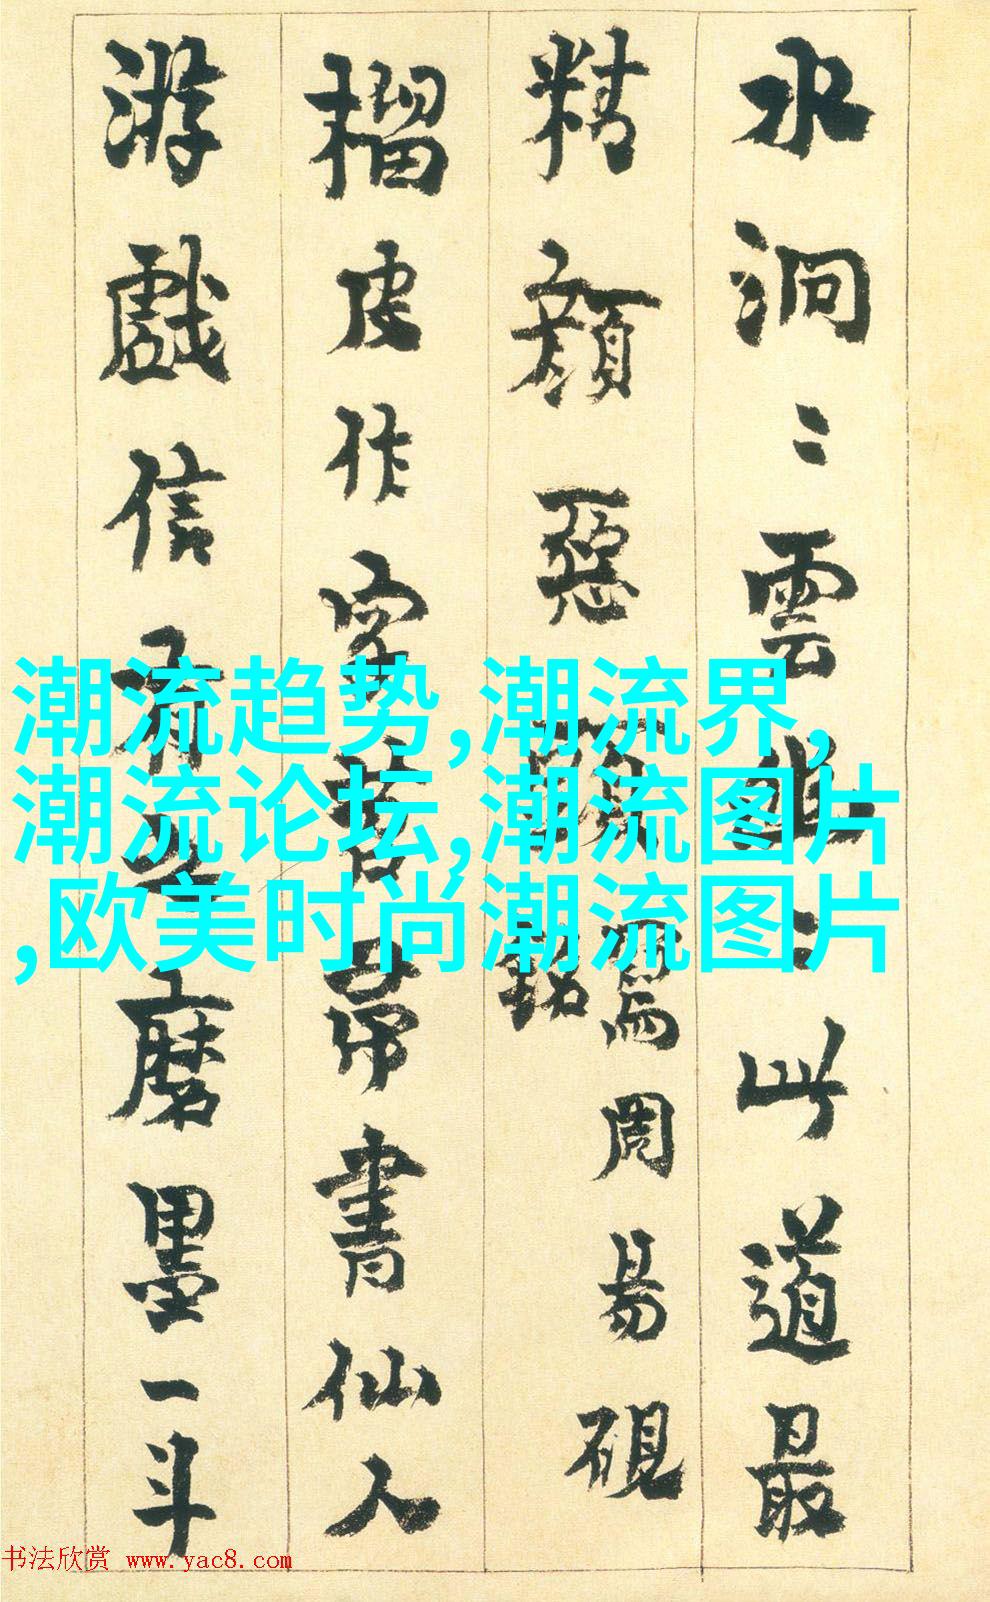 水洞〻雲
〻此道最
精顏惡
銘篤周易硯
榴皮作字
帚書仙人
游戲信有之磨墨一斗
潮流趋势,潮流界,
潮流论坛,潮流图片
,欧美时尚潮流图片
书法欣赏 www.yac8.com